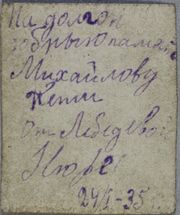 На долгою
добрыю память
Михайлову
Пети
От Лебедевой
Нюре
24/I-35